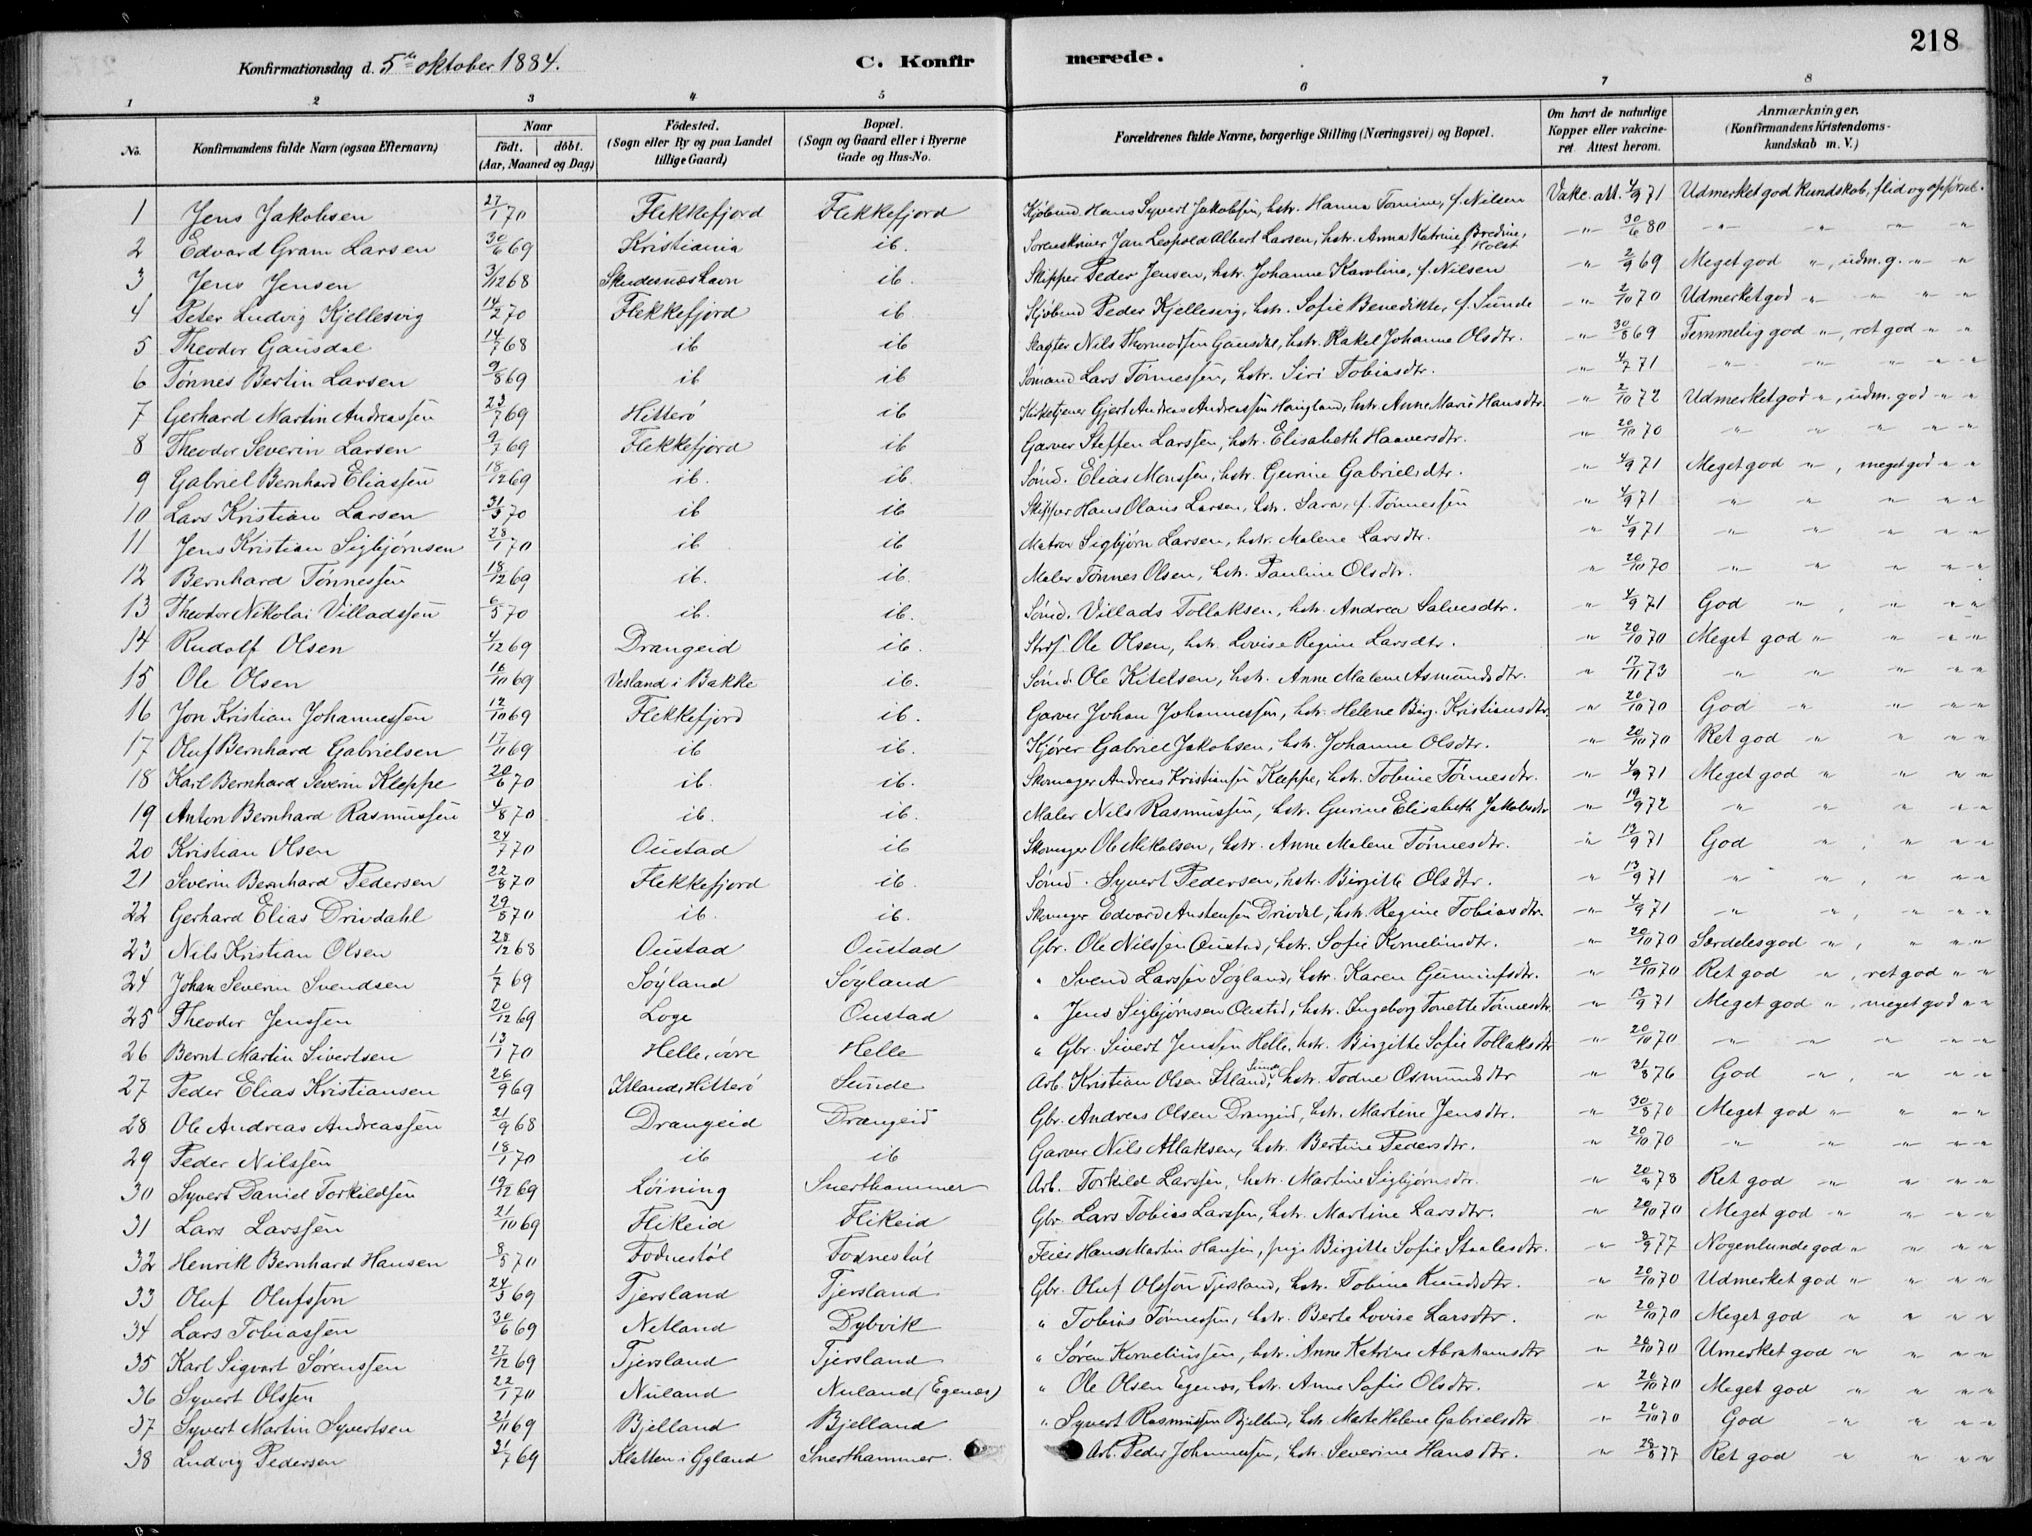 218
Konfirmationsdag d. 5te oktober 1884. C. Konfirmerede.
1 2 3 4 5 6 7 8
No. Konfirmandens fulde Navn (ogsaa Efternavn) Naar født. døbt. (Aar, Maaned og Dag) Fødested. (Sogn eller By og paa Landet tillige Gaard) Bopæl. (Sogn og Gaard eller i Byerne Gade og Hus-No. Forældrenes fulde Navne, borgerlige Stilling (Næringsvei) og Bopæl. Om havt de naturlige Kopper eller vakcineret. Attest herom. Anmærkninger. (Konfirmandens Kristendomskundskab m. V.)
1 Jens Jakobsen 27/1 70 Flekkefjord Flekkefjord Kjøbmd. Hans Syvert Jakobsen, hstr. Hanna Tomine, f. Nilsen Vakc. att. 4/9 71 Udmerket god kundskab, flid og opførsel.
2 Edvard Gram Larsen 30/6 69 Kristiania ib. Sorenskriver Jan Leopold Albert Larsen, hstr. Anna Katrine Bredine, f. Holst " 30/6 80 " " "
3 Jens Jensen 3/12 68 Skudesnæshavn ib. Skipper Peder Jensen, hstr. Johanne Karoline, f. Nilsen " 2/9 69 Meget god ", udm. g. " "
4 Peter Ludvig Kjellesvig 14/2 70 Flekkefjord ib. Kjøbmd Peder Kjellesvig, hstr. Sofie Benedikte, f. Sunde " 2/10 70 Udmerket god " " " "
5 Theodor Gausdal 14/7 68 ib ib Slagter Nils Thormodsen Gausdal, hstr. Rakel Johanne Olsdtr. " 30/8 69 Temmelig god ", ret god " "
6 Tønnes Bertin Larsen 9/8 69 ib ib Sømand Lars Tønnessen, hstr. Siri Tobiasdtr. " 4/7 71 " " " "
7 Gerhard Martin Andreassen 23/7 69 Hitterø ib Kirketjener Gjert Andreas Andreassen Haugland, hstr. Anne Marie Hansdtr. " 2/10 72 Udmerket god ", udm. god " "
8 Theodor Severin Larsen 9/7 69 Flekkefjord ib Garver Steffen Larssen, hstr. Elisabeth Haaversdtr. " 20/10 70 " " " "
9 Gabriel Bernhard Eliassen 18/12 69 ib. ib. Sømd. Elias Monssen, hstr. Gurine Gabrielsdtr. " 4/9 71 Meget god ", meget god " "
10 Lars Kristian Larsen 31/3 70 ib ib Skipper Hans Olaus Larsen, hstr. Sara, f. Tønnessen " 4/9 71 " " " "
11 Jens Kristian Sigbjørnsen 28/1 70 ib ib Matros Sigbjørn Larsen, hstr. Malene Larsdtr. " 4/9 71 " " " "
12 Bernhard Tønnessen 18/12 69 ib. ib. Maler Tønnes Olsen, hstr. Pauline Olsdtr. " 20/10 70 " " " "
13 Theodor Nikolai Villadssen 6/5 70 ib. ib. Sømd. Villads Tollaksen, hstr. Andrea Salvesdtr. " 4/9 71 God ", " " "
14 Rudolf Olsen 4/12 69 Drangeid ib. Ole Olsen, hstr. Lovise Regine Larsdtr. " 20/10 70 Meget god " " " "
15 Ole Olsen 16/10 69 Vesland i Bakke ib. Sømd. Ole Kitelsen, hstr. Anne Malene Asmundsdtr. " 17/11 73 " " " "
16 Jon Kristian Johannessen 12/10 69 Flekkefjord ib. Garver Johan Johannessen, hstr. Helene Birg. Kristiansdtr. " 20/10 70 God " " " "
17 Oluf Bernhard Gabrielsen 17/11 69 ib ib. Kjører Gabriel Jakobsen, hstr. Johanne Olsdtr. " 20/10 70 Ret god " " " "
18 Karl Bernhard Severin Kleppe 20/6 70 ib. ib. Skomager Andreas Kristiansen Kleppe, hstr. Tobine Tønnesdtr. " 4/9 71 Meget god " " " "
19 Anton Bernhard Rasmussen 4/8 70 ib. ib. Maler Nils Rasmussen, hstr. Gurine Elisabeth Jakobsdtr " 19/9 72 " " " "
20 Kristian Olsen 24/7 70 Oustad ib Skomager Ole Nikolsen, hstr. Anne Malene Tønnesdtr. " 13/9 71 God ", " " "
21 Severin Bernhard Pedersen 22/8 70 Flekkefjord ib. Sømd. Syvert Pedersen, hstr. Birgitte Olsdtr. " 13/9 71 " ", " " "
22 Gerhard Elias Drivdahl 29/8 70 ib. ib. Skomager Edvard Austensen Drivdal, hstr. Regine Tobiasdtr. " 4/9 71 " ", " " "
23 Nils Kristian Olsen 28/12 68 Oustad Oustad Gbr. Ole Nilssen Oustad, hstr. Sofie Korneliusdtr. " 20/10 70 Særdeles god ", " " "
24 Johan Severin Svendsen 1/7 69 Søyland Søyland " Svend Larssen Søyland, hstr. Karen Gunnufsdtr. " 20/10 70 Ret god ", ret god " "
25 Theodor Jenssen 20/12 69 Loge Oustad " Jens Sigbjørnsen Oustad, hstr. Ingeborg Tonette Tønnesdtr " 13/9 71 Meget god ", meget god " "
26 Bernt Martin Sivertsen 13/1 70 Helle, øvre Helle " Gbr. Sivert Jenssen Helle, hstr. Birgitte Sofie Tollaksdtr " 20/10 70 " " " "
27 Peder Elias Kristiansen 26/9 69 Itland, Hitterø Sunde Arb. Kristian Olsen Itland, Sunde, hstr. Todne Osmundsdtr " 31/8 76 God ", " " "
28 Ole Andreas Andreassen 21/9 68 Drangeid Drangeid Gbr. Andreas Olsen Drangeid, hstr. Martine Jensdtr. " 30/8 70 Meget god " " " "
29 Peder Nilssen 18/1 70 ib ib Garver Nils Atlaksen, hstr. Bertine Pedersdtr. " 20/10 70 " " " "
30 Syvert Daniel Torkildsen 19/12 69 Løining Snerthammer Arb. Torkild Larssen, hstr. Martine Sigbjørnsdtr. " 78 Ret god " " " "
31 Lars Larssen 21/10 69 Flikeid Flikeid Gbr. Lars Tobias Larssen, hstr. Martine Larsdtr. " 20/10 70 Meget god " " " "
32 Henrik Bernhard Hansen 8/5 70 Fodnestøl Fodnestøl Feier Hans Martin Hansen, pige Birgitte Sofie Staalesdtr. " 8/9 77 Nogenlunde god " " " "
33 Oluf Olufsson 24/3 69 Tjersland Tjersland Gbr. Oluf Olsson Tjersland, hstr. Tobine Knudsdtr. " 20/10 70 Udmerket god " " " "
34 Lars Tobiassen 30/6 69 Netland Dybvik " Tobias Tønnessen, hstr. Berte Lovise Larsdtr. " 20/10 70 Meget god " " " "
35 Karl Sigvart Sørenssen 27/12 69 Tjersland Tjersland " Søren Korneliussen, hstr. Anne Katrine Abrahamsdtr " 20/10 70 Umerket god " " " "
36 Syvert Olssen 22/1 70 Nuland Nuland (Egenæs) " Ole Olsen Egenæs, hstr. Anne Sofie Olsdtr. " 20/10 70 Meget god " " " "
37 Syvert Martin Syvertsen 21/11 69 Bjelland Bjelland " Syvert Rasmussen Bjelland, hstr. Marte Helene Gabrielsdtr " 20/10 70 God " " " "
38 Ludvig Pedersen 21/7 69 Kletten i Gyland Snerthammer. Arb. Peder Johannessen, hstr. Severine Hansdtr. " 28/8 77 Ret god " " " "